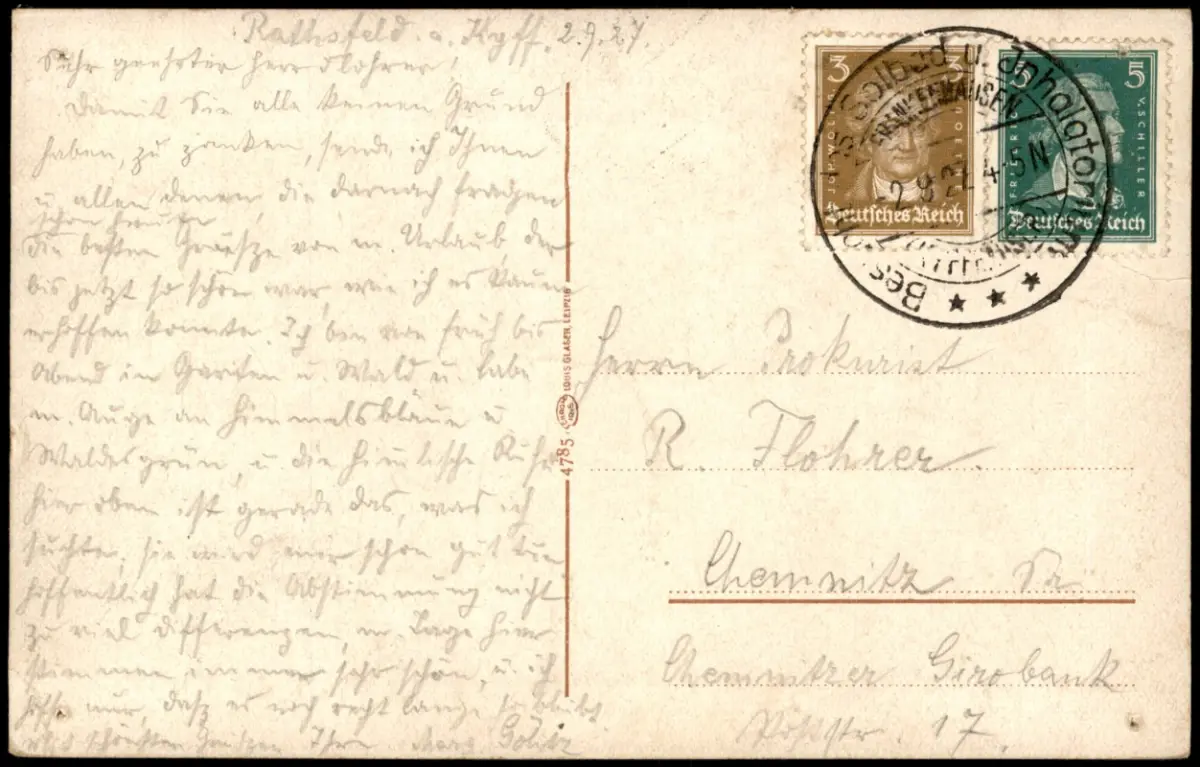 Rathsfeld a. Kyff. 2.9.27.
Sehr geehrter Herr Flohrer,
Damit Sie alle keinen Grund
haben, zu zanken, sende ich Ihnen
u. allen denen die darnach fragen
schon heute
die besten Grüsze von m. Urlaub der
bis jetzt so schön war, wie ich es kaum
erhoffen konnte. Ich bin von früh bis
Abend im Garten u. Wald u. labe
m. Auge an Himmelsbläue u.
Waldesgrün, u. die himmlische Ruhe
hier oben ist gerade das, was ich
suchte, sie wird mir schon gut tun
hoffentlich hat die Abstimmung nicht
zu viel Differenzen, m. Tage hier
stimmen immer sehr schön, u. ich
hoffe nur, dasz es noch recht lange so bleibt
schönsten Grüszen Ihre Marg. Göbitz
4785 LOUIS GLASER, LEIPZIG
3 3
JOH. WOLFG. V. GOETHE
Deutsches Reich
5 5
FRIEDRICH V. SCHILLER
Deutsches Reich
Solbad u. Inhalatorium
FRANKENHAUSEN
2.9.27. 4-5 N
Herrn Prokurist
R. Flohrer.
Chemnitz Sa.
Chemnitzer Girobank
Poststr. 17.